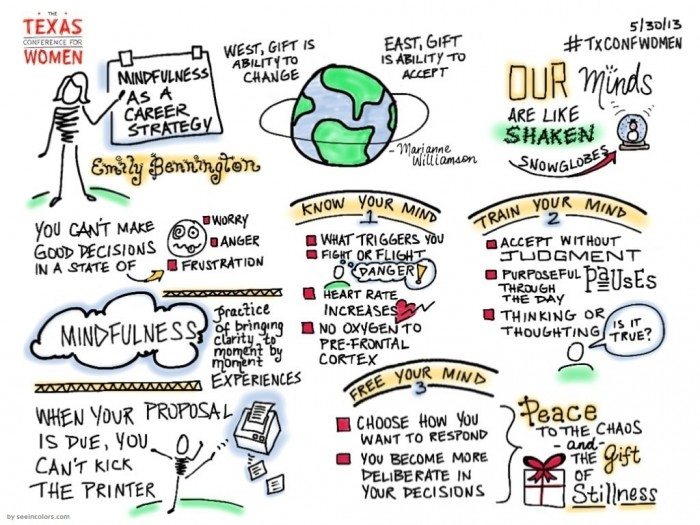 THE
TEXAS
CONFERENCE FOR
WOMEN
MINDFULNESS
AS A
CAREER
STRATEGY
Emily Bennington
WEST, GIFT IS
ABILITY TO
CHANGE
EAST, GIFT
IS ABILITY TO
ACCEPT
- Marianne
Williamson
5/30/13
#TXCONFWOMEN
OUR Minds
ARE LIKE
SHAKEN
SNOWGLOBES
YOU CAN'T MAKE
GOOD DECISIONS
IN A STATE OF
WORRY
ANGER
FRUSTRATION
MINDFULNESS
practice
of bringing
clarity to
moment by
moment
EXPERIENCES
WHEN YOUR PROPOSAL
IS DUE, YOU
CAN'T KICK
THE PRINTER
KNOW YOUR MIND
1
WHAT TRIGGERS YOU
FIGHT OR FLIGHT
DANGER!
HEART RATE
INCREASES
NO OXYGEN TO
PRE-FRONTAL
CORTEX
TRAIN YOUR MIND
2
ACCEPT WITHOUT
JUDGMENT
PURPOSEFUL PAUSES
THROUGH
THE DAY
THINKING OR
THOUGHTING
IS IT
TRUE?
FREE YOUR MIND
3
CHOOSE HOW YOU
WANT TO RESPOND
YOU BECOME MORE
DELIBERATE IN
YOUR DECISIONS
Peace
TO THE CHAOS
- and -
THE Gift
OF
Stillness
by seeincolors.com